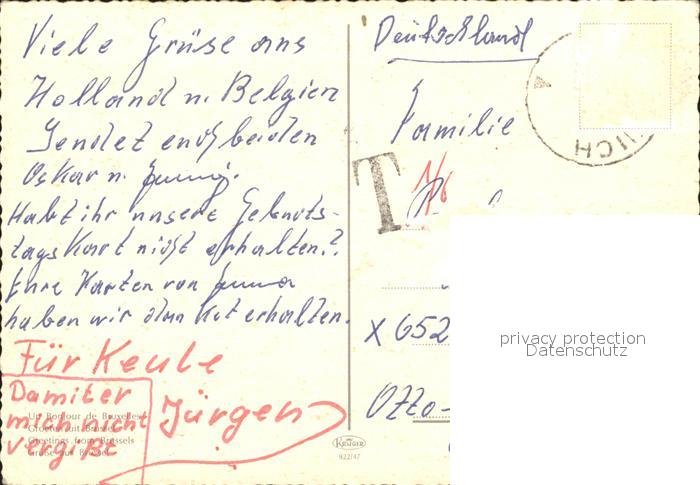 Viele Grüse aus
Holland u. Belgien
Sendet euch beiden
Oskar u.
Habt ihr unsere Geburts-
tags Kart nicht erhalten.?
Eure Karten von
haben wir dan Kut erhalten.
Für Keule
Jürgen
Damit er
mich nicht
vergißt
Un Bonjour de Bruxelles
Groeten uit Brussel
Greetings from Brussels
Grüße aus Brüssel
Deutschland
Familie
T
X 652
Otto-
KRÜGER
922/47
privacy protection
Datenschutz